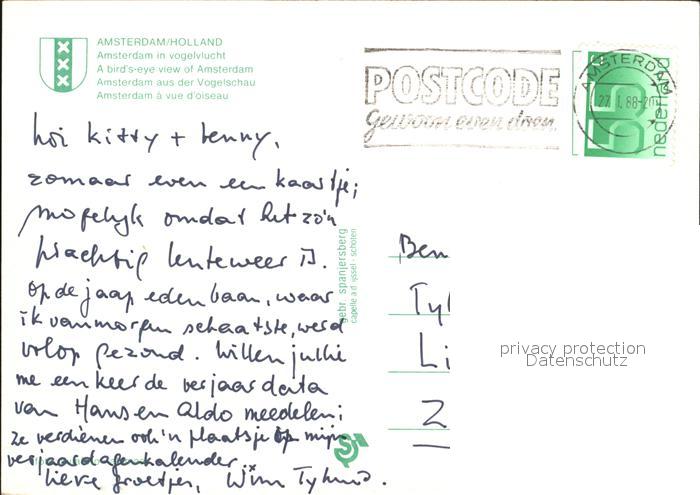 AMSTERDAM/HOLLAND
Amsterdam in vogelvlucht
A bird's-eye view of Amsterdam
Amsterdam aus der Vogelschau
Amsterdam à vue d'oiseau
POSTCODE
gewoon even doen.
AMSTERDAM
27 88
nederland
hoi Kitty + benny,
zomaar even een kaartje;
mogelijk omdat het zo'n
prachtig lenteweer is.
op de jaap edenbaan, waar
ik vanmorgen schaatste, werd
volop gezond. Willen jullie
me een keer de verjaardata
van Hans en Aldo meedelen;
ze verdienen ook 'n plaatsje op mijn
verjaardagenkalender.
lieve groetjes, Wim
gebr. spanjersberg
capelle a.d. ijssel - scholen
Ben
Tyl
Li
Z
privacy protection
Datenschutz